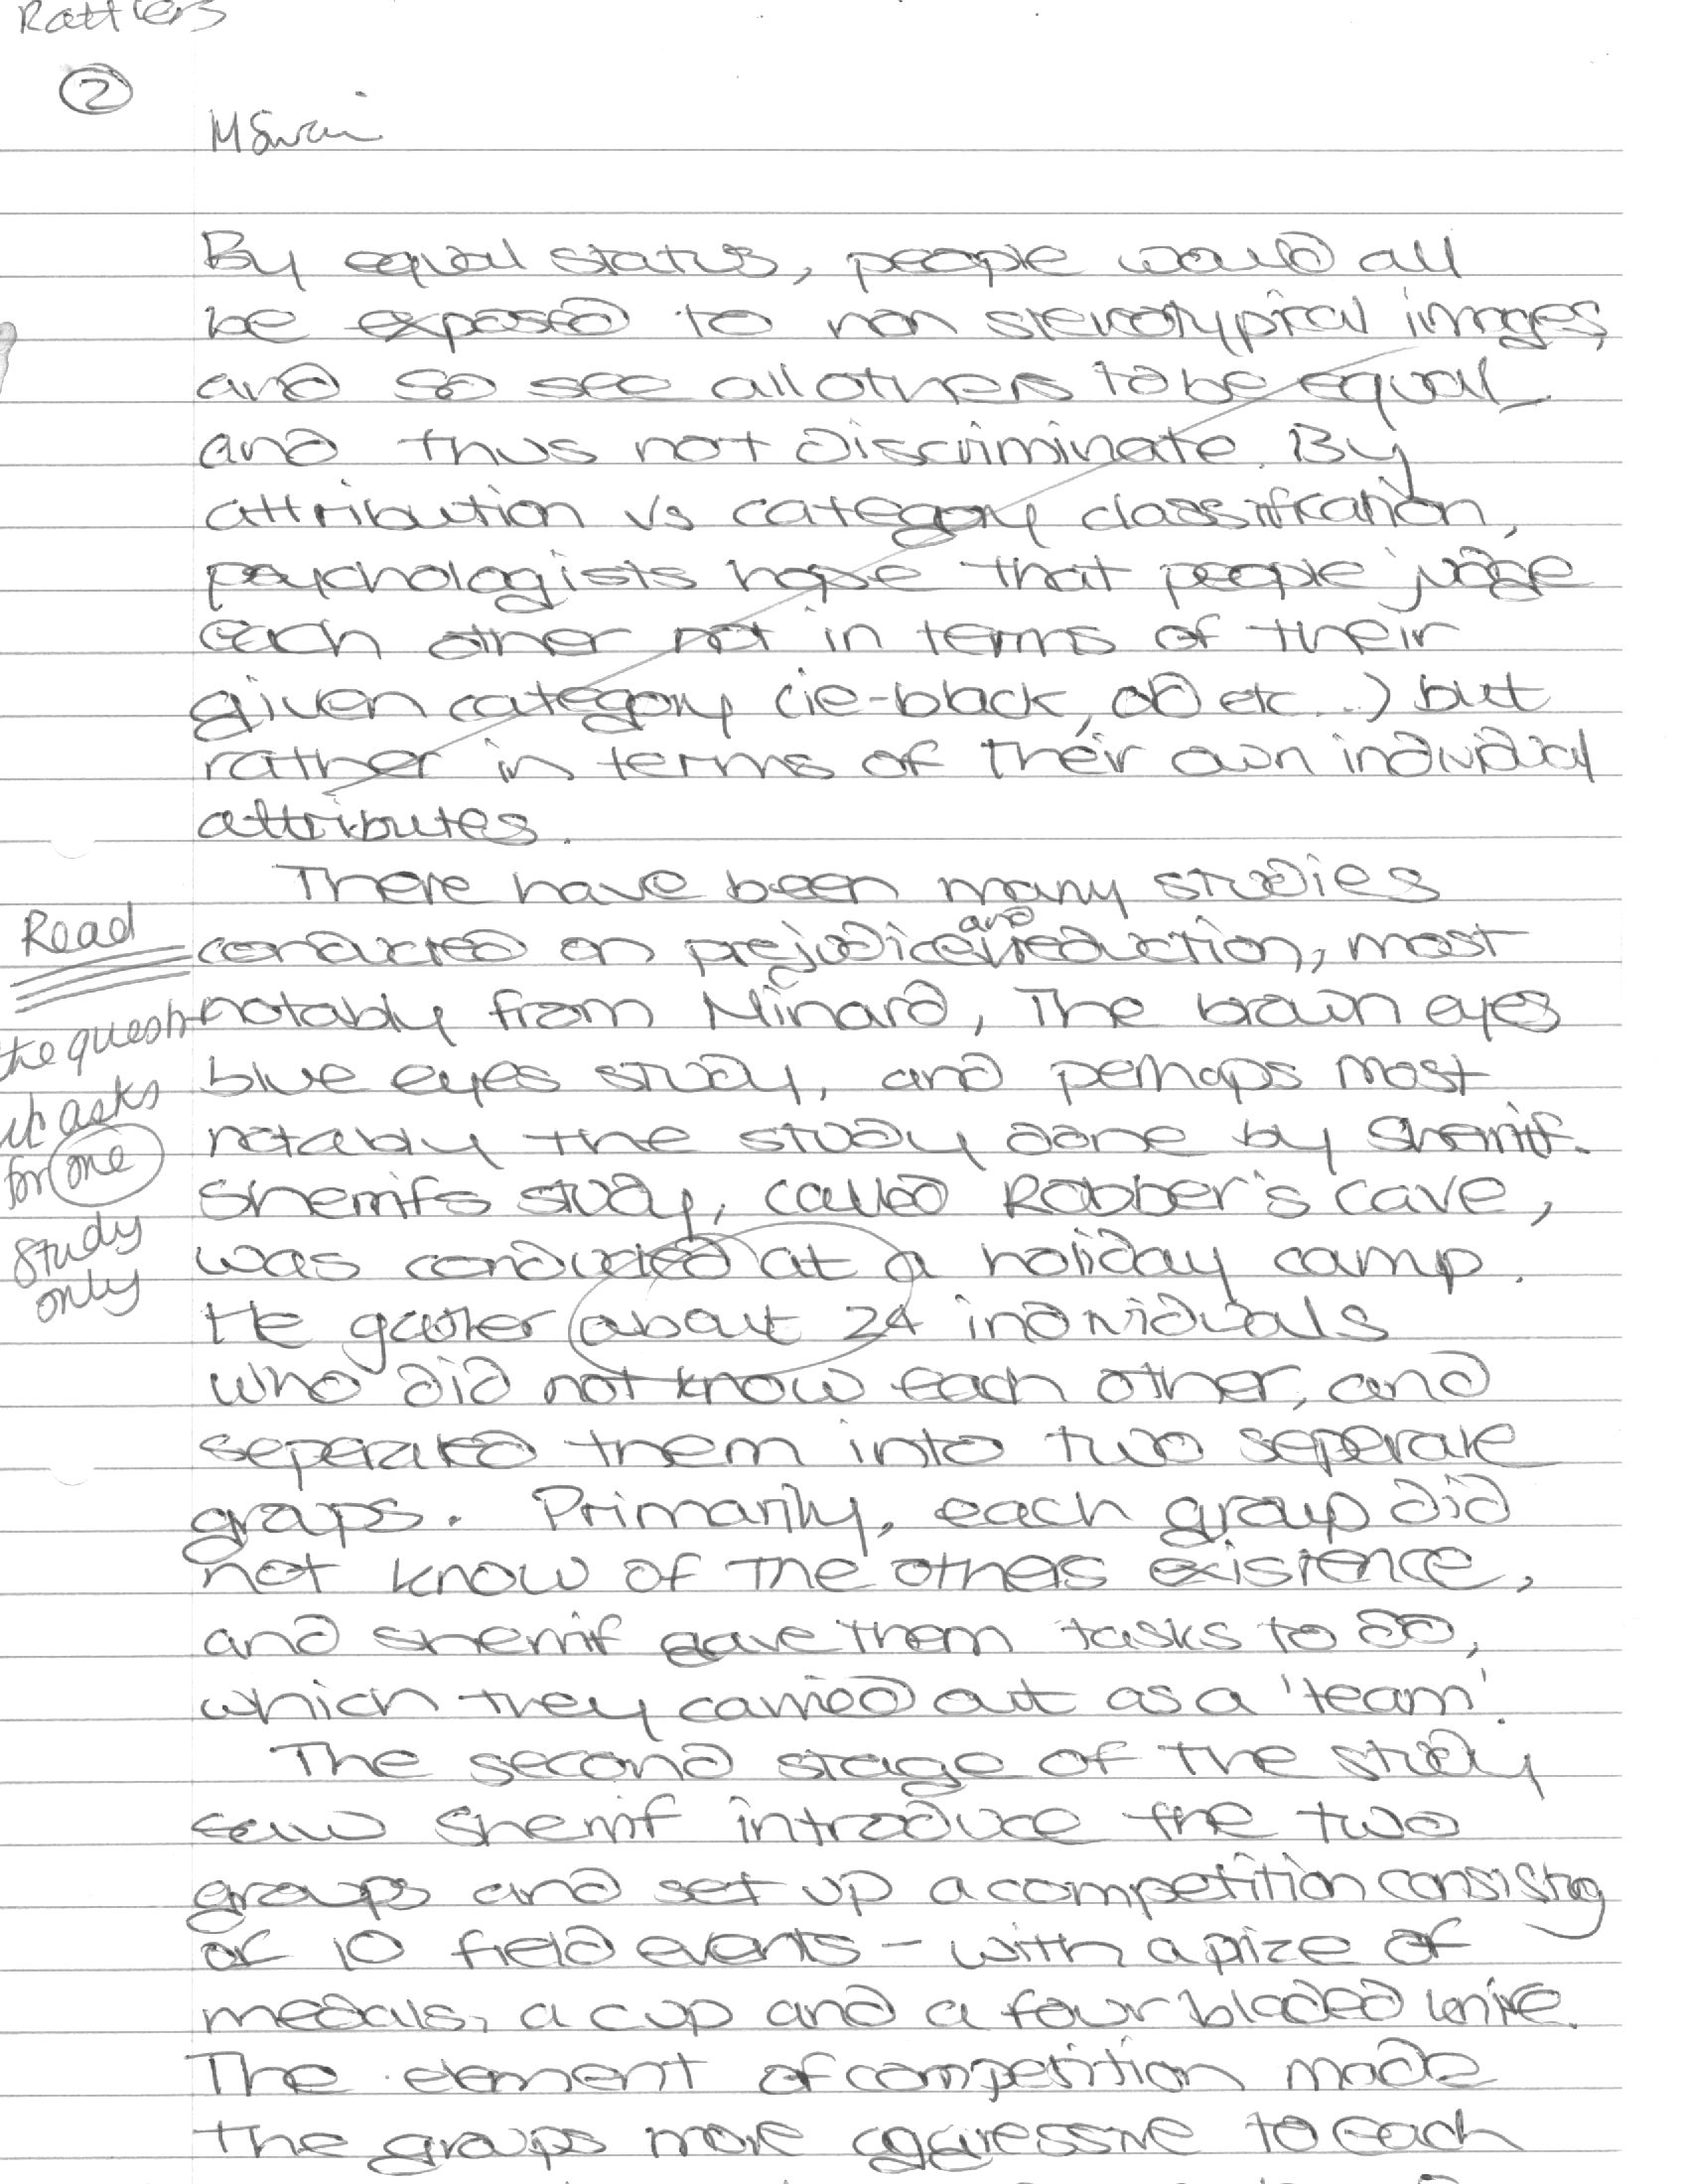 Rattlers
2
By equal status, people would all
be exposed to non sterotypical images,
and so see all others to be equal
and thus not discriminate. By
attribution vs category classification,
psychologists hope that people judge
each other not in terms of their
given category (ie-black, old etc...) but
rather in terms of their own individual
attributes.
There have been many studies
conducted on prejudice and reduction, most
notably from Minard, The brown eyes
blue eyes study, and perhaps most
notably the study done by Sherrif.
Sherrifs study, called Robber's cave,
was conducted at a holiday camp.
He gather about 24 individuals
who did not know each other, and
seperated them into two seperate
groups. Primarily, each group did
not know of the others existence,
and sherrif gave them tasks to do,
which they carried out as a 'team'.
The second stage of the study
saw Sherrif introduce the two
groups and set up a competition consisting
of 10 field events - with a prize of
medals, a cup and a four bladed knife.
The element of competition made
the groups more aggressive to each
Read
the quest
it asks
for one
study
only